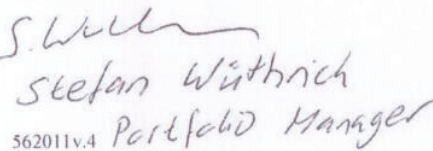 S. Wü
Stefan Wüthrich
562011v.4 Portfolio Manager